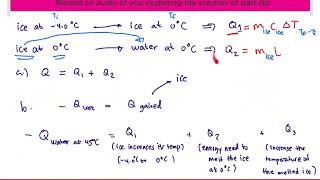 Record an audio of you explaining the solution of part (b).
Ti Tf
ice at -4.0°C → ice at 0°C ⇒ Q1 = mice Cice ΔT Tf-Ti
ice at 0°C → water at 0°C ⇒ Q2 = mice L
a) Q = Q1 + Q2
ice
b. - Q lost = Q gained
- Q water at 45°C = Q1 + Q2 + Q3
(ice increases its temp) (energy need to (increase the
(-4.0°C to 0°C) melt the ice temperature of
at 0°C) the melted ice)